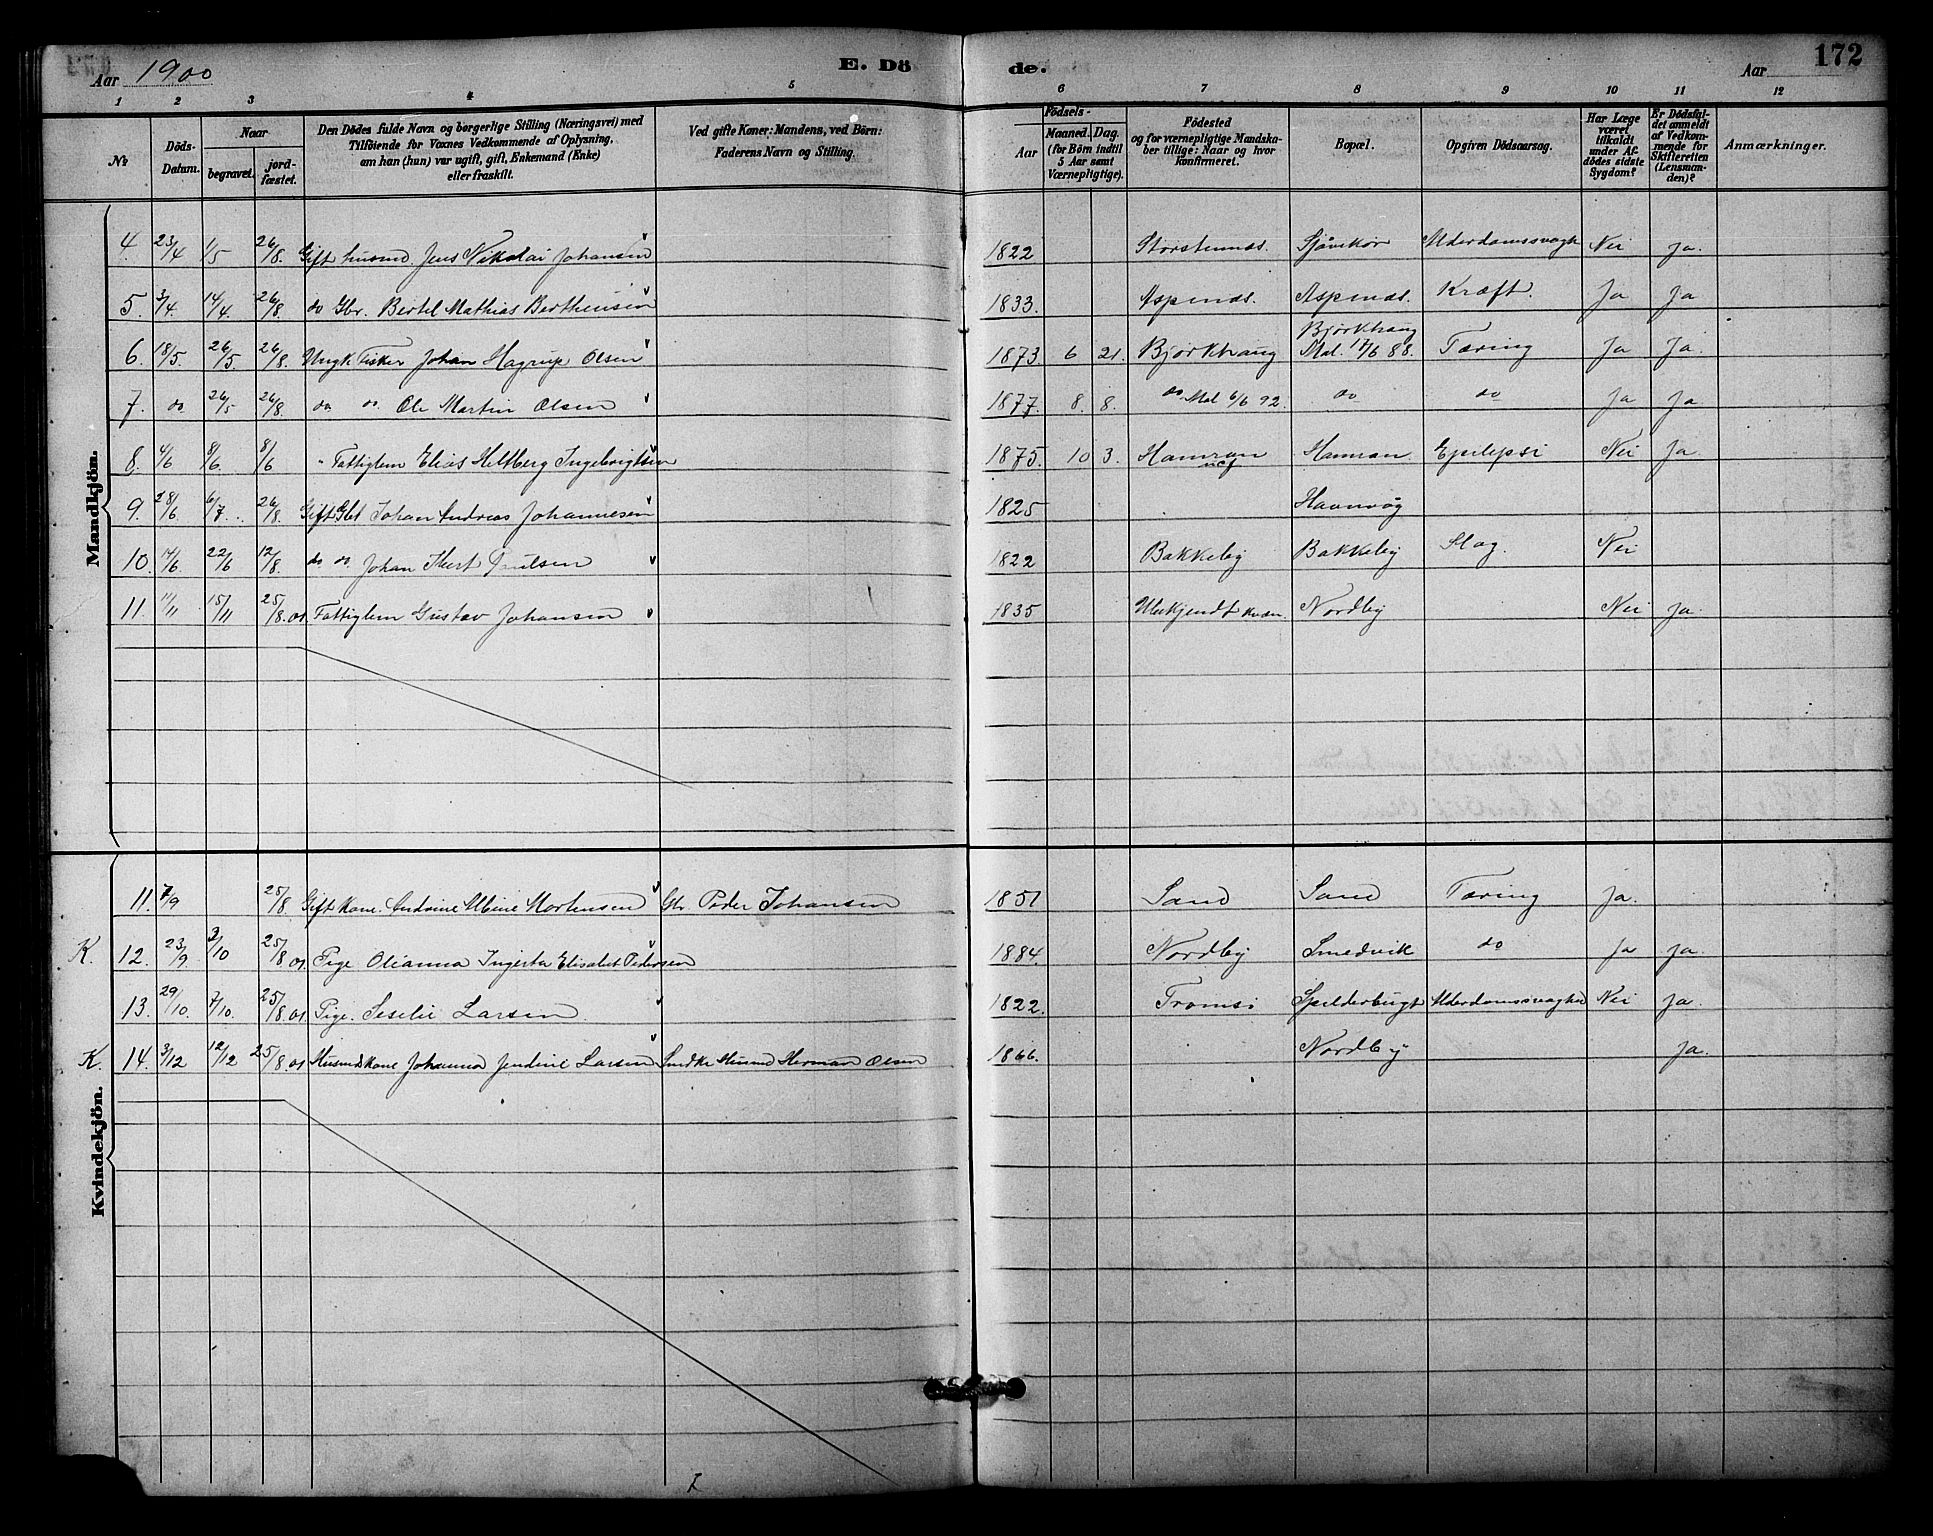 Aar 1900 E. Dö de. Aar 172
1 2 3 4 5 6 7 8 9 10 11 12
No
Döds-Datum.
Naar
begravet. jordfæstet.
Den Dödes fulde Navn og borgerlige Stilling (Næringsvei) med
Tilföiende for Voxnes Vedkommende af Oplysning,
om han (hun) var ugift, gift, Enkemand (Enke)
eller fraskilt.
Ved gifte Koner: Mandens, ved Börn:
Faderens Navn og Stilling.
Födsels-
Aar
Maaned. Dag.
(for Börn indtil
5 Aar samt
Værnepligtige).
Födested
og for værnepligtige Mandskaber tillige: Naar og hvor
konfirmeret.
Bopæl.
Opgiven Dödsaarsag.
Har Læge
været
tilkaldt
under Afdödes sidste
Sygdom?
Er Dödsfaldet anmeldt
af Vedkommende for
Skifteretten
(Lensmanden)?
Anmærkninger.
Mandkjön.
4. 23/4 1/5 26/8. Gift husmd. Jens Nikolai Johansen 1822 Storstennes. Sjåvikør Alderdomssvagh Nei Ja.
5. 3/4. 14/4. 26/8. do Gbr. Bertel Mathias Bertheusen 1833. Aspenæs. Aspenæs. Kræft. Ja Ja
6. 18/5. 26/5. 26/8. Ungk Fisker Johan Hagrup Olsen 1873. 6 21. Bjørkhaug Bjørkhaug Mal. 17/6 88. Tæring Ja Ja.
7. do 26/5 26/8. do do. Ole Martin Olsen 1877. 8. 8. do Mal 6/6 92. do do Ja Ja
8. 4/6 8/6. 8/6 " Fattiglem Elias Heltberg Ingebrigtsen 1875. 10 3. Hamran Hamran. Epilepsi Nei Ja.
9. 28/6 6/7. 26/8. Gift Gbr Johan Andreas Johannesen 1825 Havnvåg
10. 14/6. 22/6 12/8. do do Johan Kurt Paulsen 1822 Bakkeby Bakkeby Slag. Nei
11. 11/11 15/11 25/8.01. Fattiglem Gustav Johansen 1835 Ubekjendt Kvæn. Nordby Nei Ja.
Kvindekjön.
11. 7/9 25/8. Gift Kone. Andrine Albine Mortensen Gbr. Peder Johansen 1851 Sand Sand Tæring Ja.
K. 12. 23/9 3/10 25/8.01. Pige Olianna Ingerta Elisabet Pedersen 1884. Nordby Smedvik do Ja Ja.
13. 29/10. 7/10. 25/8.01. Pige. Seselie Larsen. 1822. Tromsø Spilderbugt Alderdomssvaghed Nei Ja.
K. 14. 3/12 12/12 25/8.01 Husmdskone Johanna Jendine Larsen Husmd Herman Olsen 1866. Nordby Ja.